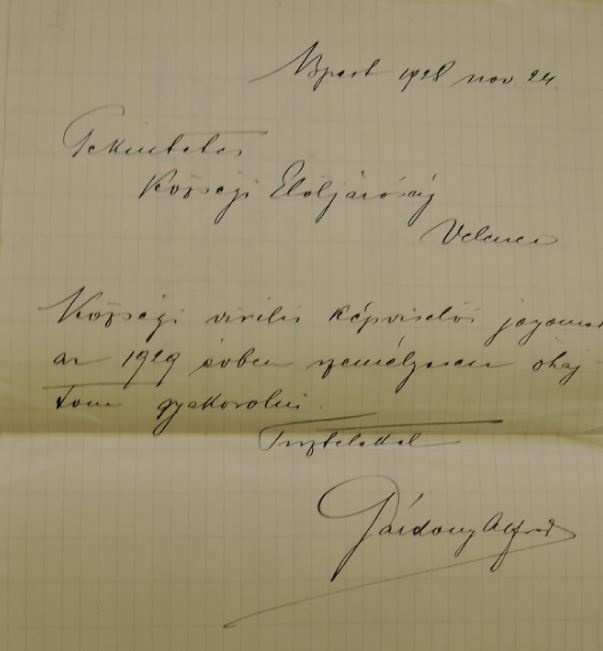 Bpest 1928 nov. 24.
Tekintetes
Községi Elöljáróság
Velence
Községi virilis képviselői jogomat
az 1929 évben személyesen óhaj
tom gyakorolni.
Tisztelettel
Párdony Alfréd